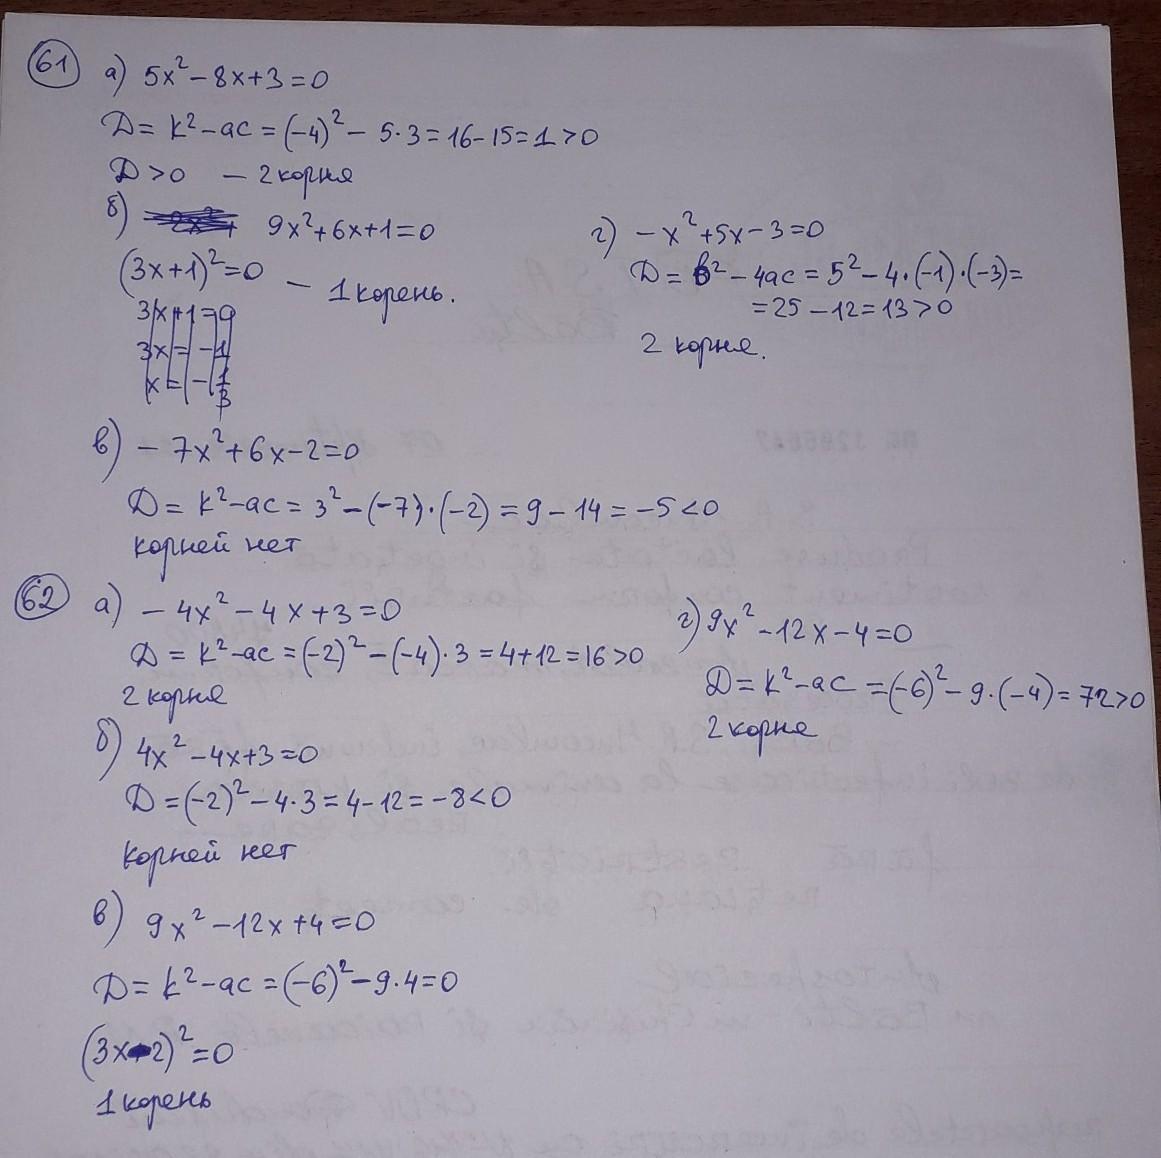 61 а) 5x² - 8x + 3 = 0
D = k² - ac = (-4)² - 5·3 = 16 - 15 = 1 > 0
D > 0 - 2 корня
б) 9x² + 6x + 1 = 0
(3x + 1)² = 0 - 1 корень.
3x + 1 = 0
3x = -1
x = -1/3
г) -x² + 5x - 3 = 0
D = b² - 4ac = 5² - 4·(-1)·(-3) =
= 25 - 12 = 13 > 0
2 корня.
в) - 7x² + 6x - 2 = 0
D = k² - ac = 3² - (-7)·(-2) = 9 - 14 = -5 < 0
корней нет
62 а) - 4x² - 4x + 3 = 0
D = k² - ac = (-2)² - (-4)·3 = 4 + 12 = 16 > 0
2 корня
г) 9x² - 12x - 4 = 0
D = k² - ac = (-6)² - 9·(-4) = 72 > 0
2 корня
б) 4x² - 4x + 3 = 0
D = (-2)² - 4·3 = 4 - 12 = -8 < 0
корней нет
в) 9x² - 12x + 4 = 0
D = k² - ac = (-6)² - 9·4 = 0
(3x - 2)² = 0
1 корень